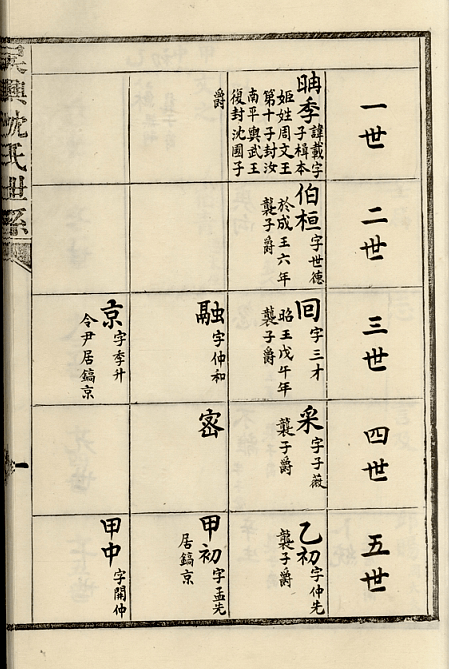 一世
冉季
諱載字
子楫本
姬姓周文王
第十子封汝
南平輿武王
復封沈國子
爵
二世
伯桓
字世德
於成王六年
襲子爵
三世
回
字三才
昭王戊午年
襲子爵
融
字仲和
京
字季升
令尹居鎬京
四世
采
字子薇
襲子爵
密
五世
乙初
字仲先
襲子爵
甲初
字孟先
居鎬京
甲中
字開仲
吳興沈氏世系
一